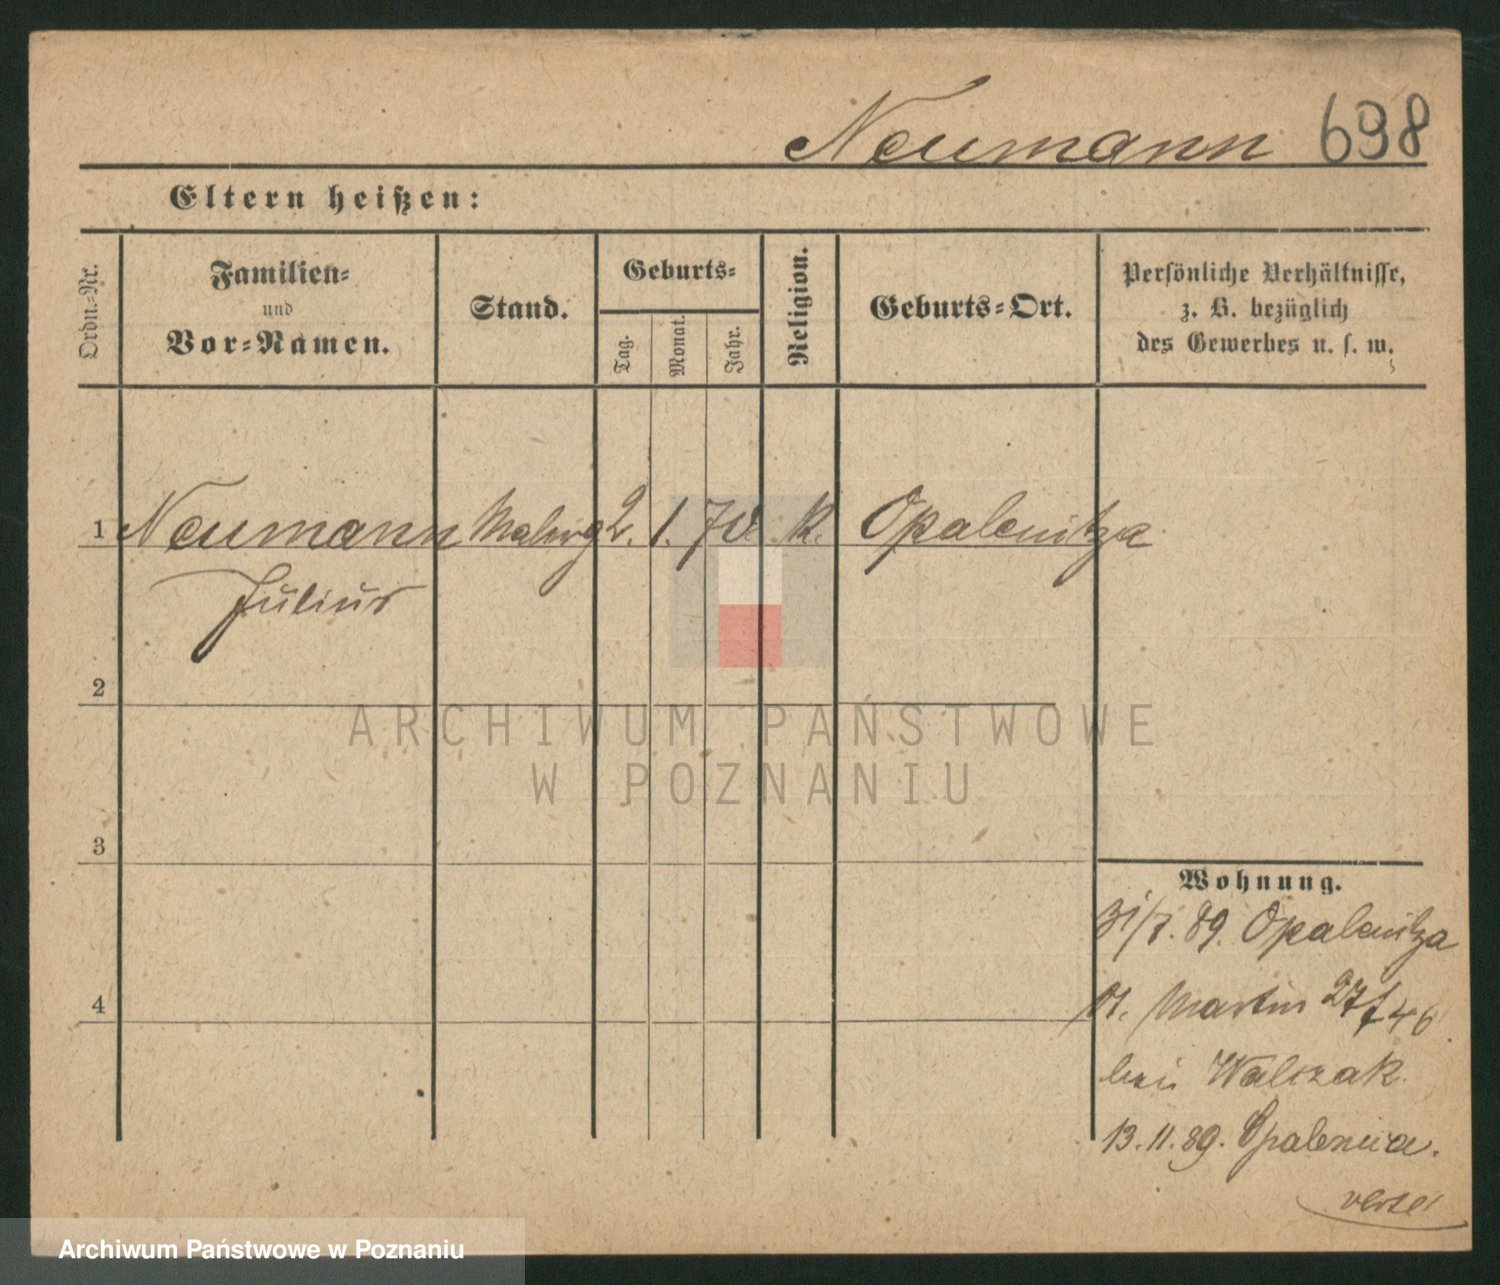 Neumann 698
Eltern heißen:
Ordn.-Nr.
Familien-
und
Vor-Namen.
Stand.
Geburts-
Tag.
Monat.
Jahr.
Religion.
Geburts-Ort.
Persönliche Verhältnisse,
z. B. bezüglich
des Gewerbes u. s. w.
1 Neumann 2. 1. 70 k. Opalenitza
Julius
2
ARCHIWUM PAŃSTWOWE
W POZNANIU
3
Wohnung.
31/7. 89. Opalenitza
St. Martin 27 46
bei Walczak.
4
13.11.89. Opalenica.
Archiwum Państwowe w Poznaniu